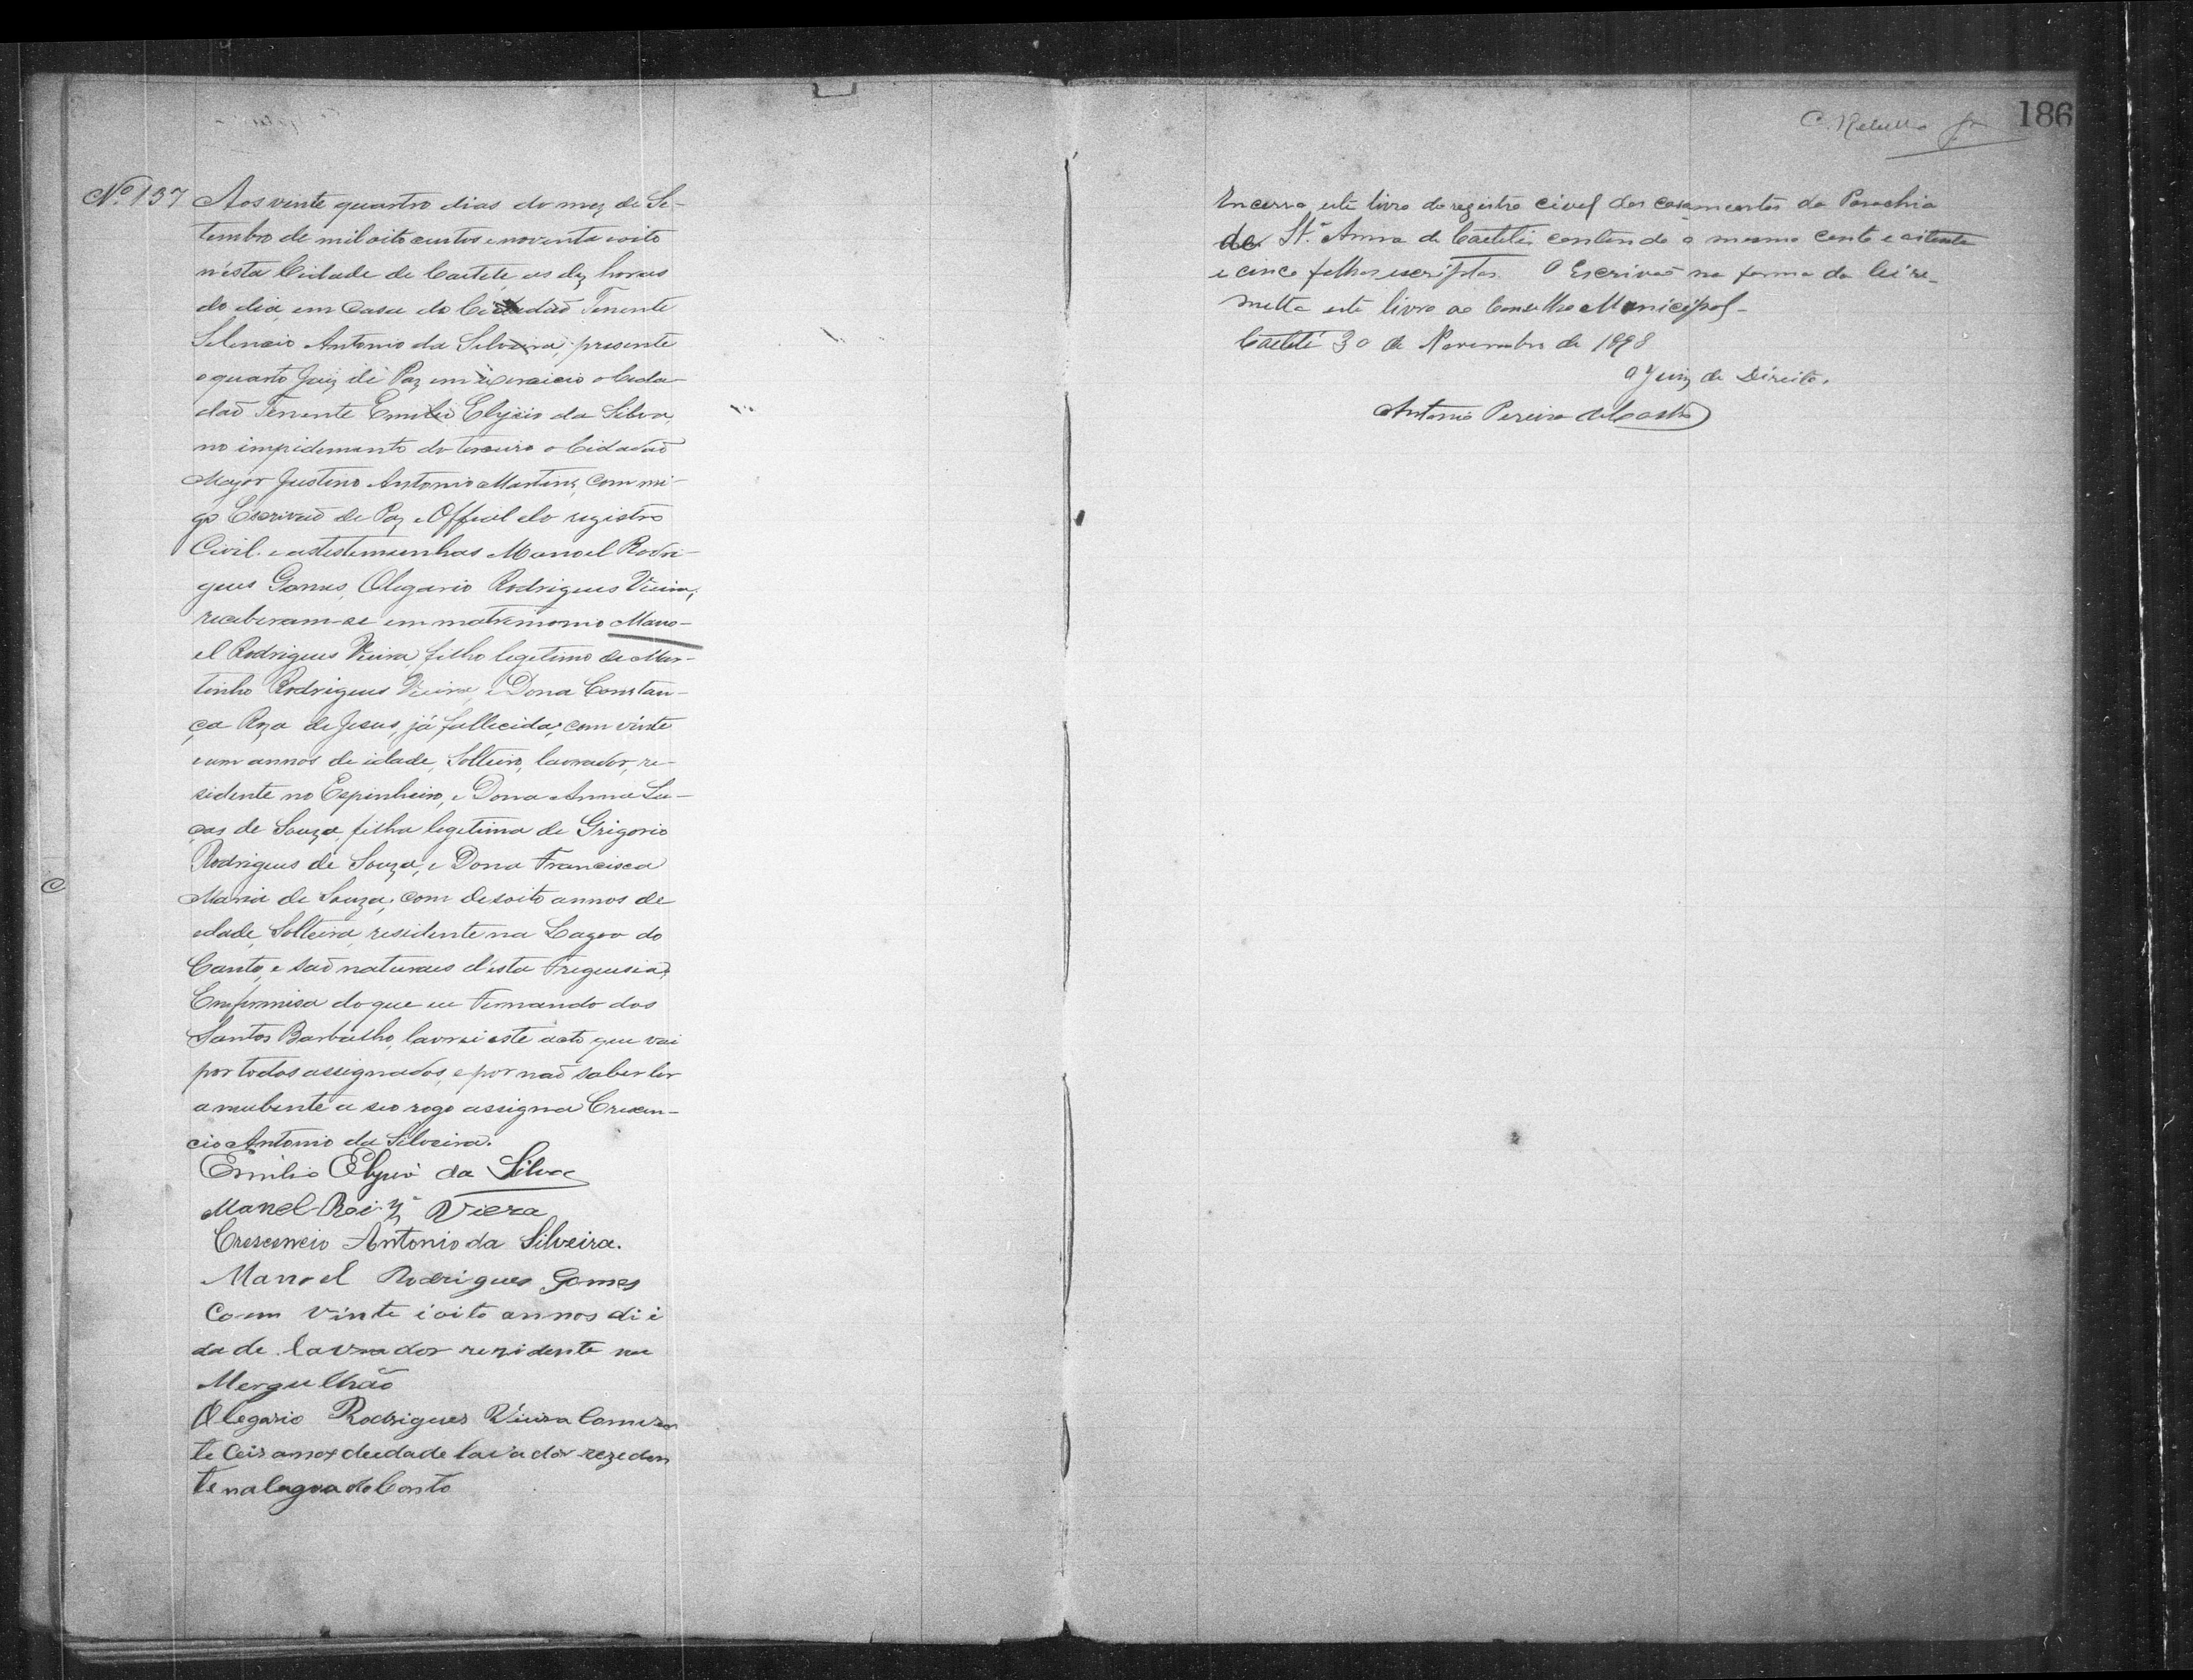 Nº 137 Aos vinte quatro dias do mez de Se-
tembro de mil oito centos e noventa e oito
n'esta Cidade de Caetete, as dez horas
do dia, em Casa do Cidadão Tenente
Antonio da Silveira, presente
o quarto Juiz de Paz em exercicio o Cida-
dão Tenente Emilio Elyzio da Silva,
no impidemento do terceiro o Cidadão
Major Justino Antonio Martins, commi-
go Escrivão de Paz e Official do registro
Civil e as testemunhas Manoel Rodri-
gues Gomes, Olegario Rodrigues Vieira,
receberam-se em matrimonio Mano-
el Rodrigues Vieira, filho legetimo de Mar-
tinho Rodrigues Vieira, e Dona Constan-
ça Roza de Jesus, já fallecida, com vinte
e um annos de idade, Solteiro, lavrador, re-
sidente no Espinheiro, e Dona Anna Lu-
cas de Souza, filha legetima de Grigorio
Rodrigues de Souza, e Dona Francisca
Maria de Souza, com desoito annos de
edade, Solteira, residente na Lagoa do
Canto, e são naturaes d'esta Freguesia,
Em firmisa do que eu Fernando dos
Santos Barbalho, lavrei este acto que vai
por todos assignados, e por não saber ler
a nubente a seo rogo assigna Cresen-
cio Antonio da Silveira.
Emilio Elyzio da Silva
Manoel Viera
Crescencio Antonio da Silveira.
Manoel Rodrigues Gomes
Com vinte i oito annos di i
dade lavrador rezidente na
Mergulhão
Olegario Rodrigues Vieira
te Ceis annos deedade lavador rezeden
te na lagoa do Canto
186
Encerro este livro do registro civel dos casamentos da Parochia
de Stª Anna de Caetité contendo o mesmo cento e oitenta
e cinco folhas escriptas. O Escrivão na forma da lei re-
metta este livro ao Conselho Municipal-
Caetité 30 de Novembro de 1898
O Juiz de Direito.
Antonio Pereira de Castro